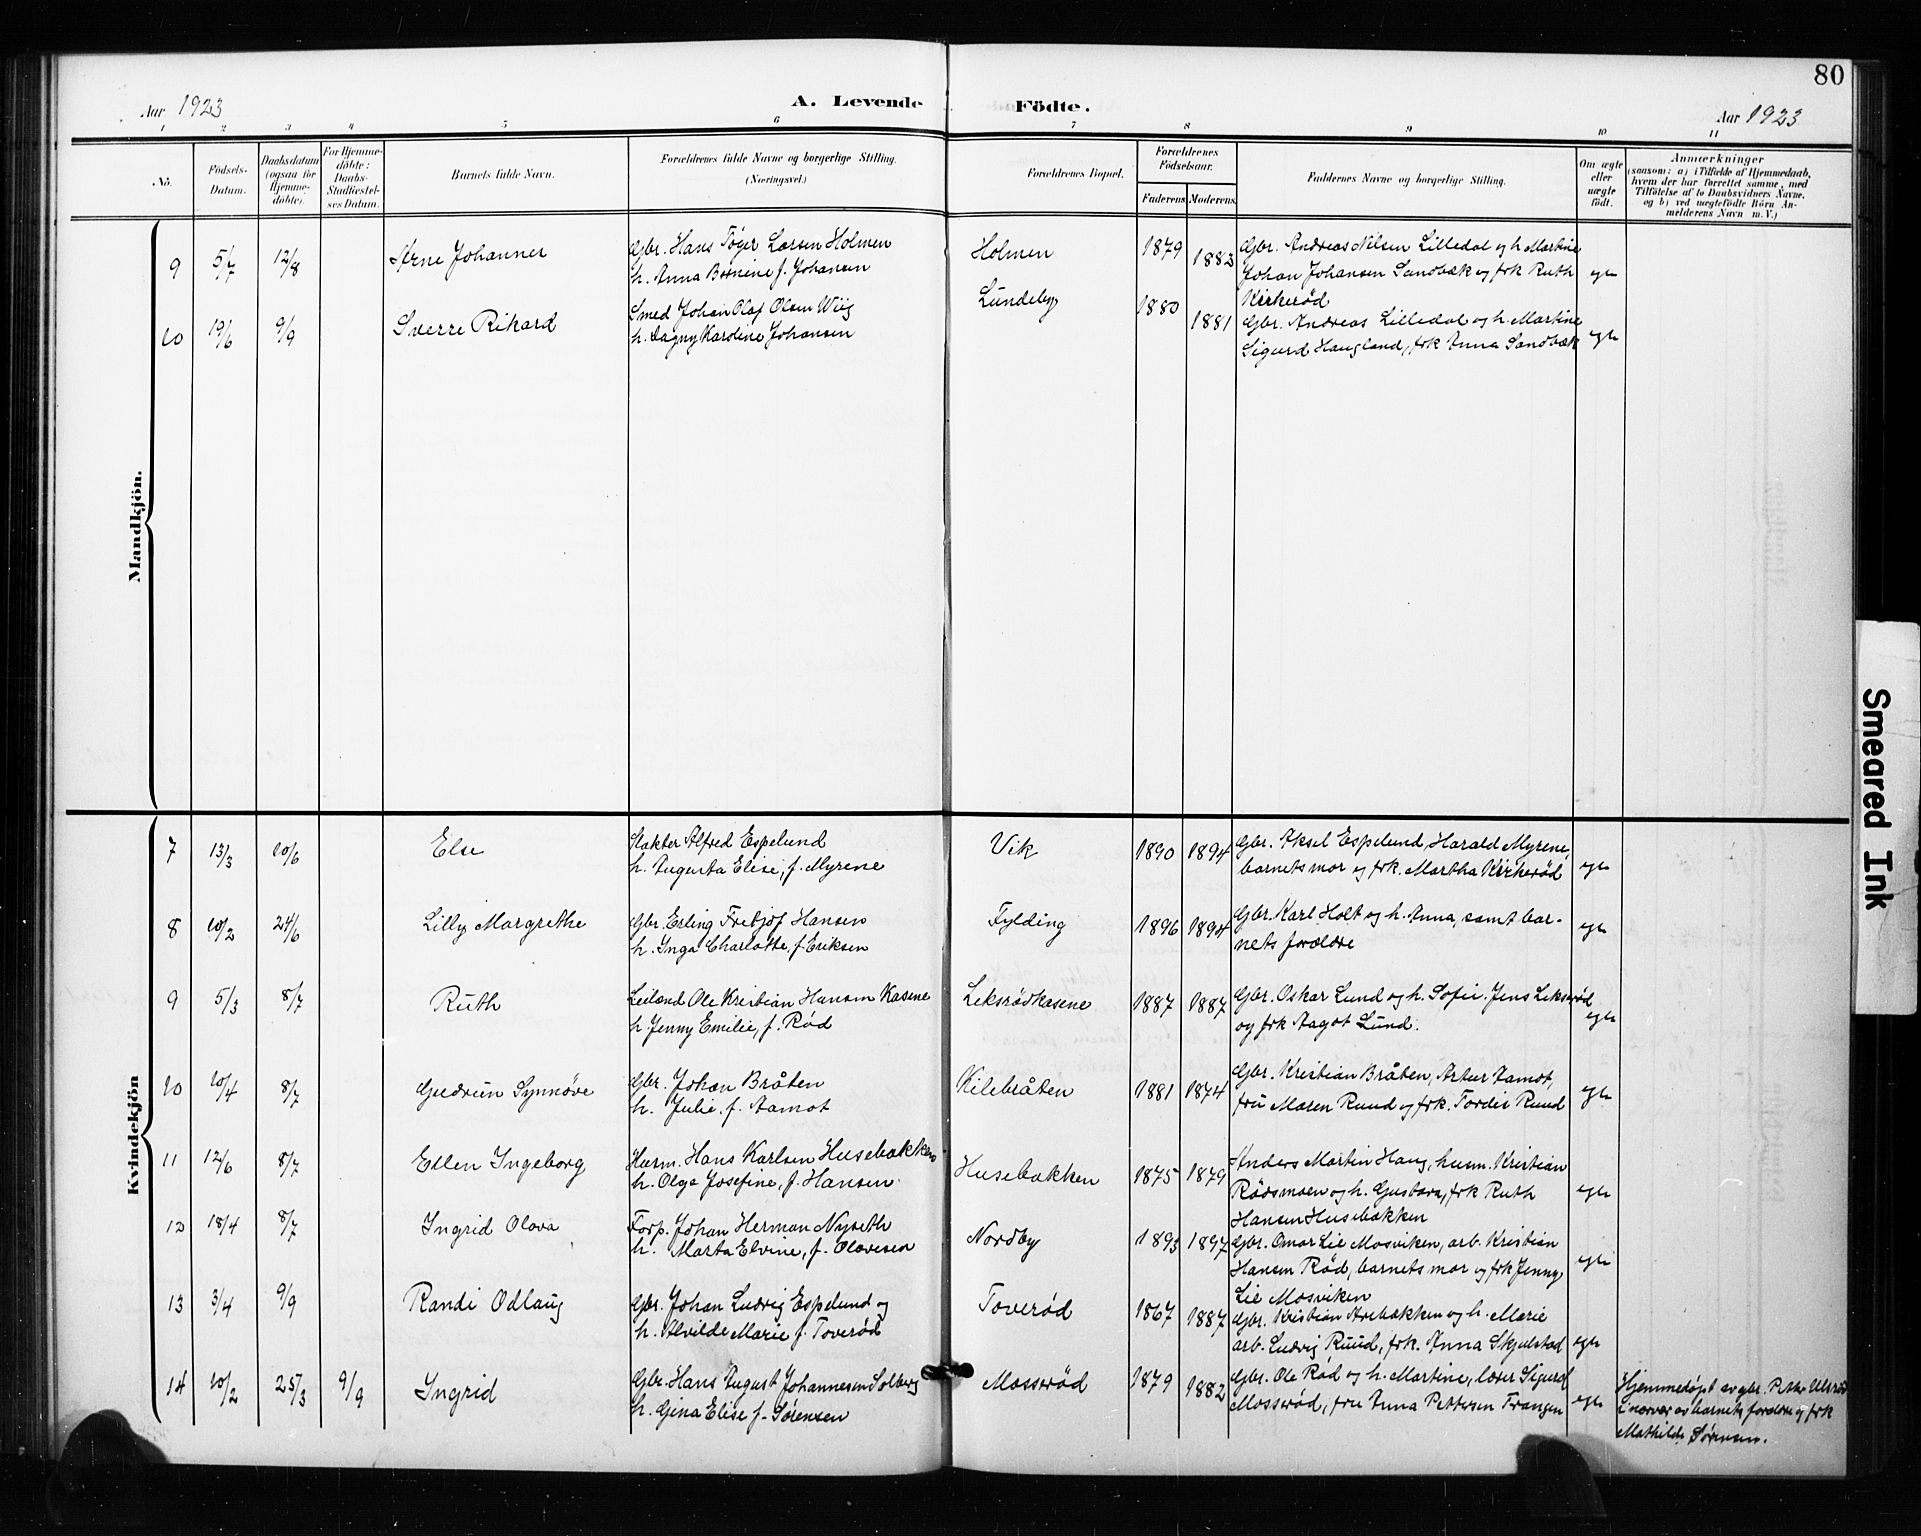 80
Aar 1923
A. Levende Födte.
Aar 1923
1 2 3 4 5 6 7 8 9 10 11
No.
Födsels-
Datum.
Daabsdatum
(ogsaa for
Hjemme-
döbte).
For Hjemme-
döbte:
Daabs-
Stadfæstel-
ses Datum.
Barnets fulde Navn.
Forældrenes fulde Navne og borgerlige Stilling.
(Næringsvei.)
Forældrenes Bopæl.
Forældrenes
Födselsaar.
Faderens. Moderens.
Faddernes Navne og borgerlige Stilling.
Om ægte
eller
uægte
födt.
Anmærkninger
(saasom: a) i Tilfælde af Hjemmedaab,
hvem der har forrettet samme, med
Tilföielse af to Daabsvidners Navne,
og b) ved uægtefödte Börn An-
melderens Navn m. V.)
Mandkjön.
9 5/7 12/8 Arne Johannes
Gbr. Hans Tøger Larsen Holmen
h. Anna Bernine f. Johansen
Holmen 1879 1883
Gbr. Andreas Nilsen Lilledal og h. Martine
Johan Johansen Sandbæk og frk Ruth
Kirkerød
egte
10 19/6 9/9 Sverre Rikard
Smed Johan Olaf Olsen Wiig
h. Dagny Karoline Johansen
Lundeby 1880 1881
Gbr. Andreas Lilledal og h. Martine
Sigurd Haugland, frk Anna Sandbæk
egte
Kvindekjön
7 13/3 10/6 Else
Slakter Alfred Espelund
h. Augusta Elise, f. Myrene
Vik 1890 1894
Gbr. Aksel Espelund, Harald Myrene,
barnets mor og frk. Martha Kirkerød
egte
8 10/2 24/6 Lilly Margrethe
Gbr. Erling Fritjof Hansen
h. Inga Charlotte, f. Eriksen
Fylding 1896 1894
Gbr. Karl Holt og h. Anna, samt bar-
nets forældre
egte
9 5/3 8/7 Ruth
Leilænd Ole Kristian Hansen Kasene
h Jenny Emilie, f. Rød
Leksrödkasene 1887 1887
Gbr. Oskar Lund og h. Sofie. Jens Leksrød
og frk Aagot Lund.
egte
10 10/4 8/7 Gudrun Synnöve
Gbr. Johan Bråten
h. Julie, f. Aamot
Kilebråten 1881 1874
Gbr. Kristian Bråten, Artur Aamot,
fru Maren Ruud og frk. Tordis Ruud
egte
11 12/6 8/7 Ellen Ingeborg
Husm. Hans Karlsen Husebakken
h. Olga Josefine, f. Hansen
Husebakken 1875 1879
Anders Martin Haug, husm. Kristian
Rödsmoen og h. Gustava, frk Ruth
Hansen Husebakken
egte
12 18/4 8/7 Ingrid Olova
Forp. Johan Herman Nyseth
h. Marta Elvine, f. Olavesen
Nordby 1893 1897
Gbr. Omar Lie Mosviken, arb. Kristian
Hansen Rød, barnets mor og frk Jenny
Lie Mosviken
egte
13 3/4 9/9 Randi Odlaug
Gbr. Johan Ludvig Espelund og
h. Alvilde Marie f. Toverød
Toverød 1867 1887
Gbr. Kristian Arebakken og h. Marie
arb. Ludvig Ruud, frk. Anna Skjulstad
egte
14 10/2 25/3 9/9 Ingrid
Gbr. Hans August Johannesen Solberg
h. Gina Elise f. Sørensen
Mosserød 1879 1882
Gbr. Ole Rød og h. Martine, lærer Sigurd
Mosserød, fru Anna Pettersen Trangen
egte
Hjemmedøpt av gbr. Petter Ulsrød
i nærvær av barnets forældre og frk
Mathilde Sørensen.
Smeared Ink